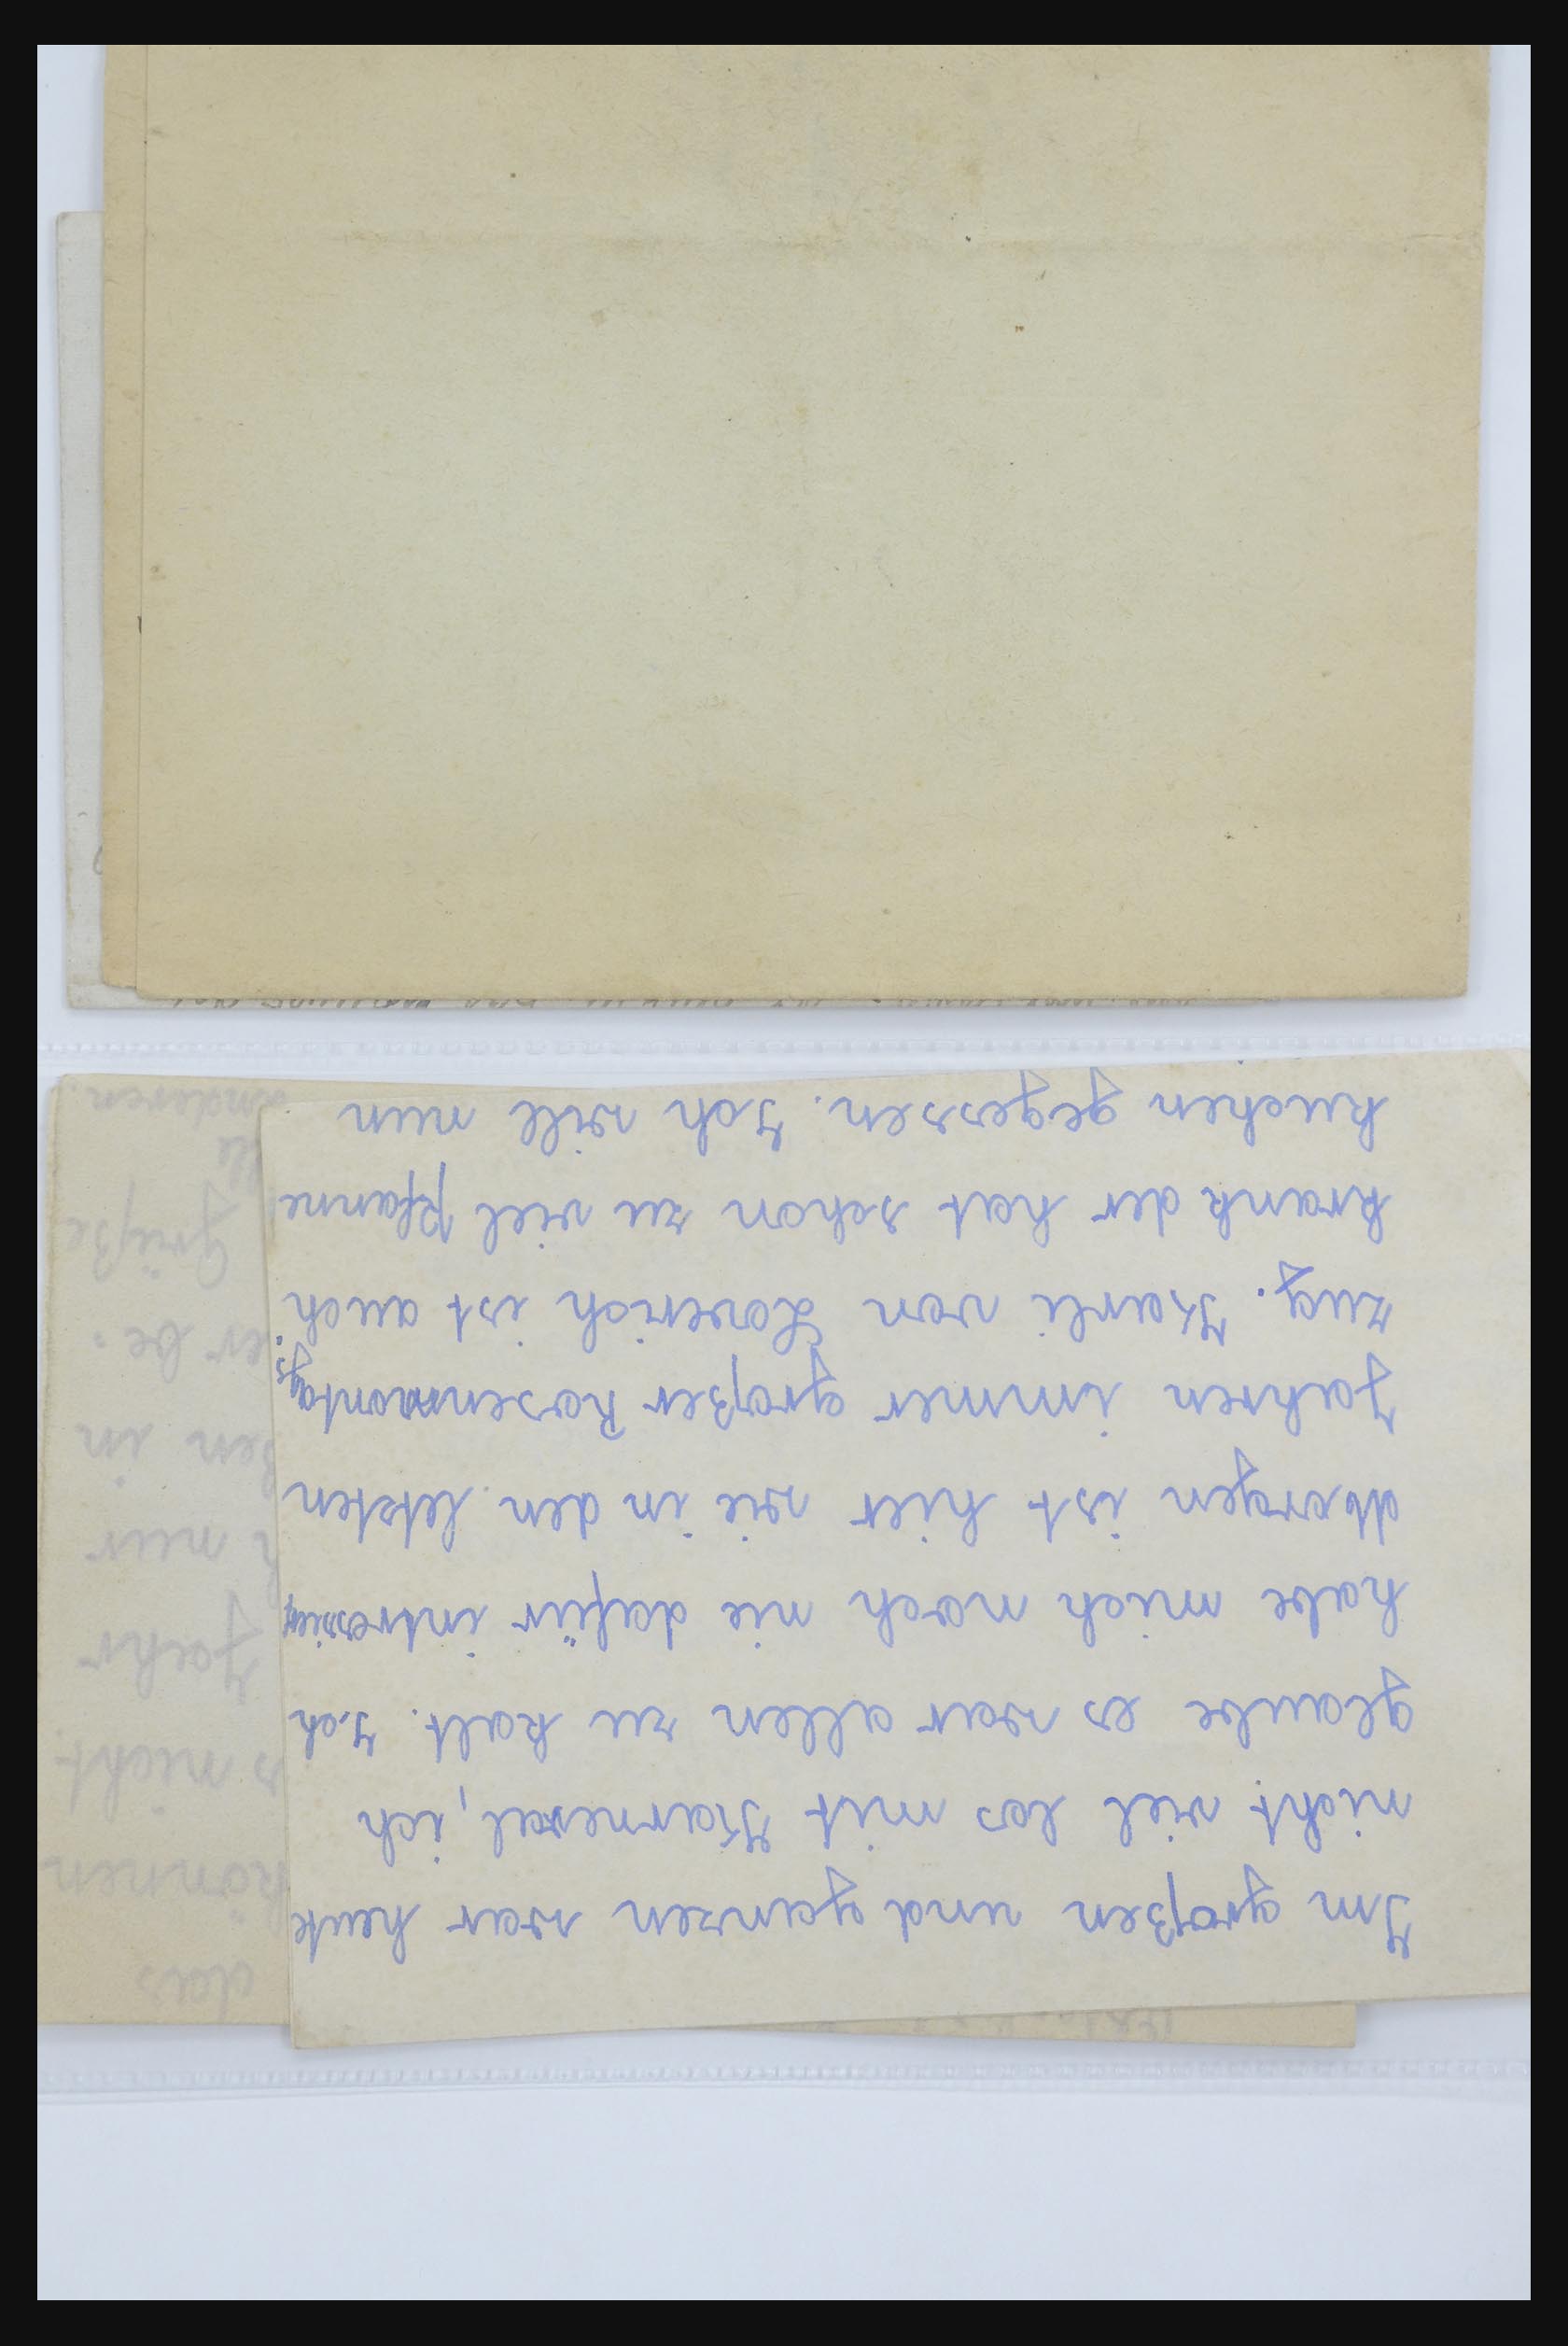 Im großen und ganzen war heute
nicht viel los mit Karneval, ich
glaube es war allen zu kalt. Ich
habe mich noch nie dafür
morgen ist hier wie in den letzten
Jahren immer großer Rosenmontags
zug. Karli von Loverich ist auch
krank der hat schon zu viel Pfanne
kuchen gegessen. Ich will nun
das
können
nicht
Jahr
nur
in
Grüße
anderen.